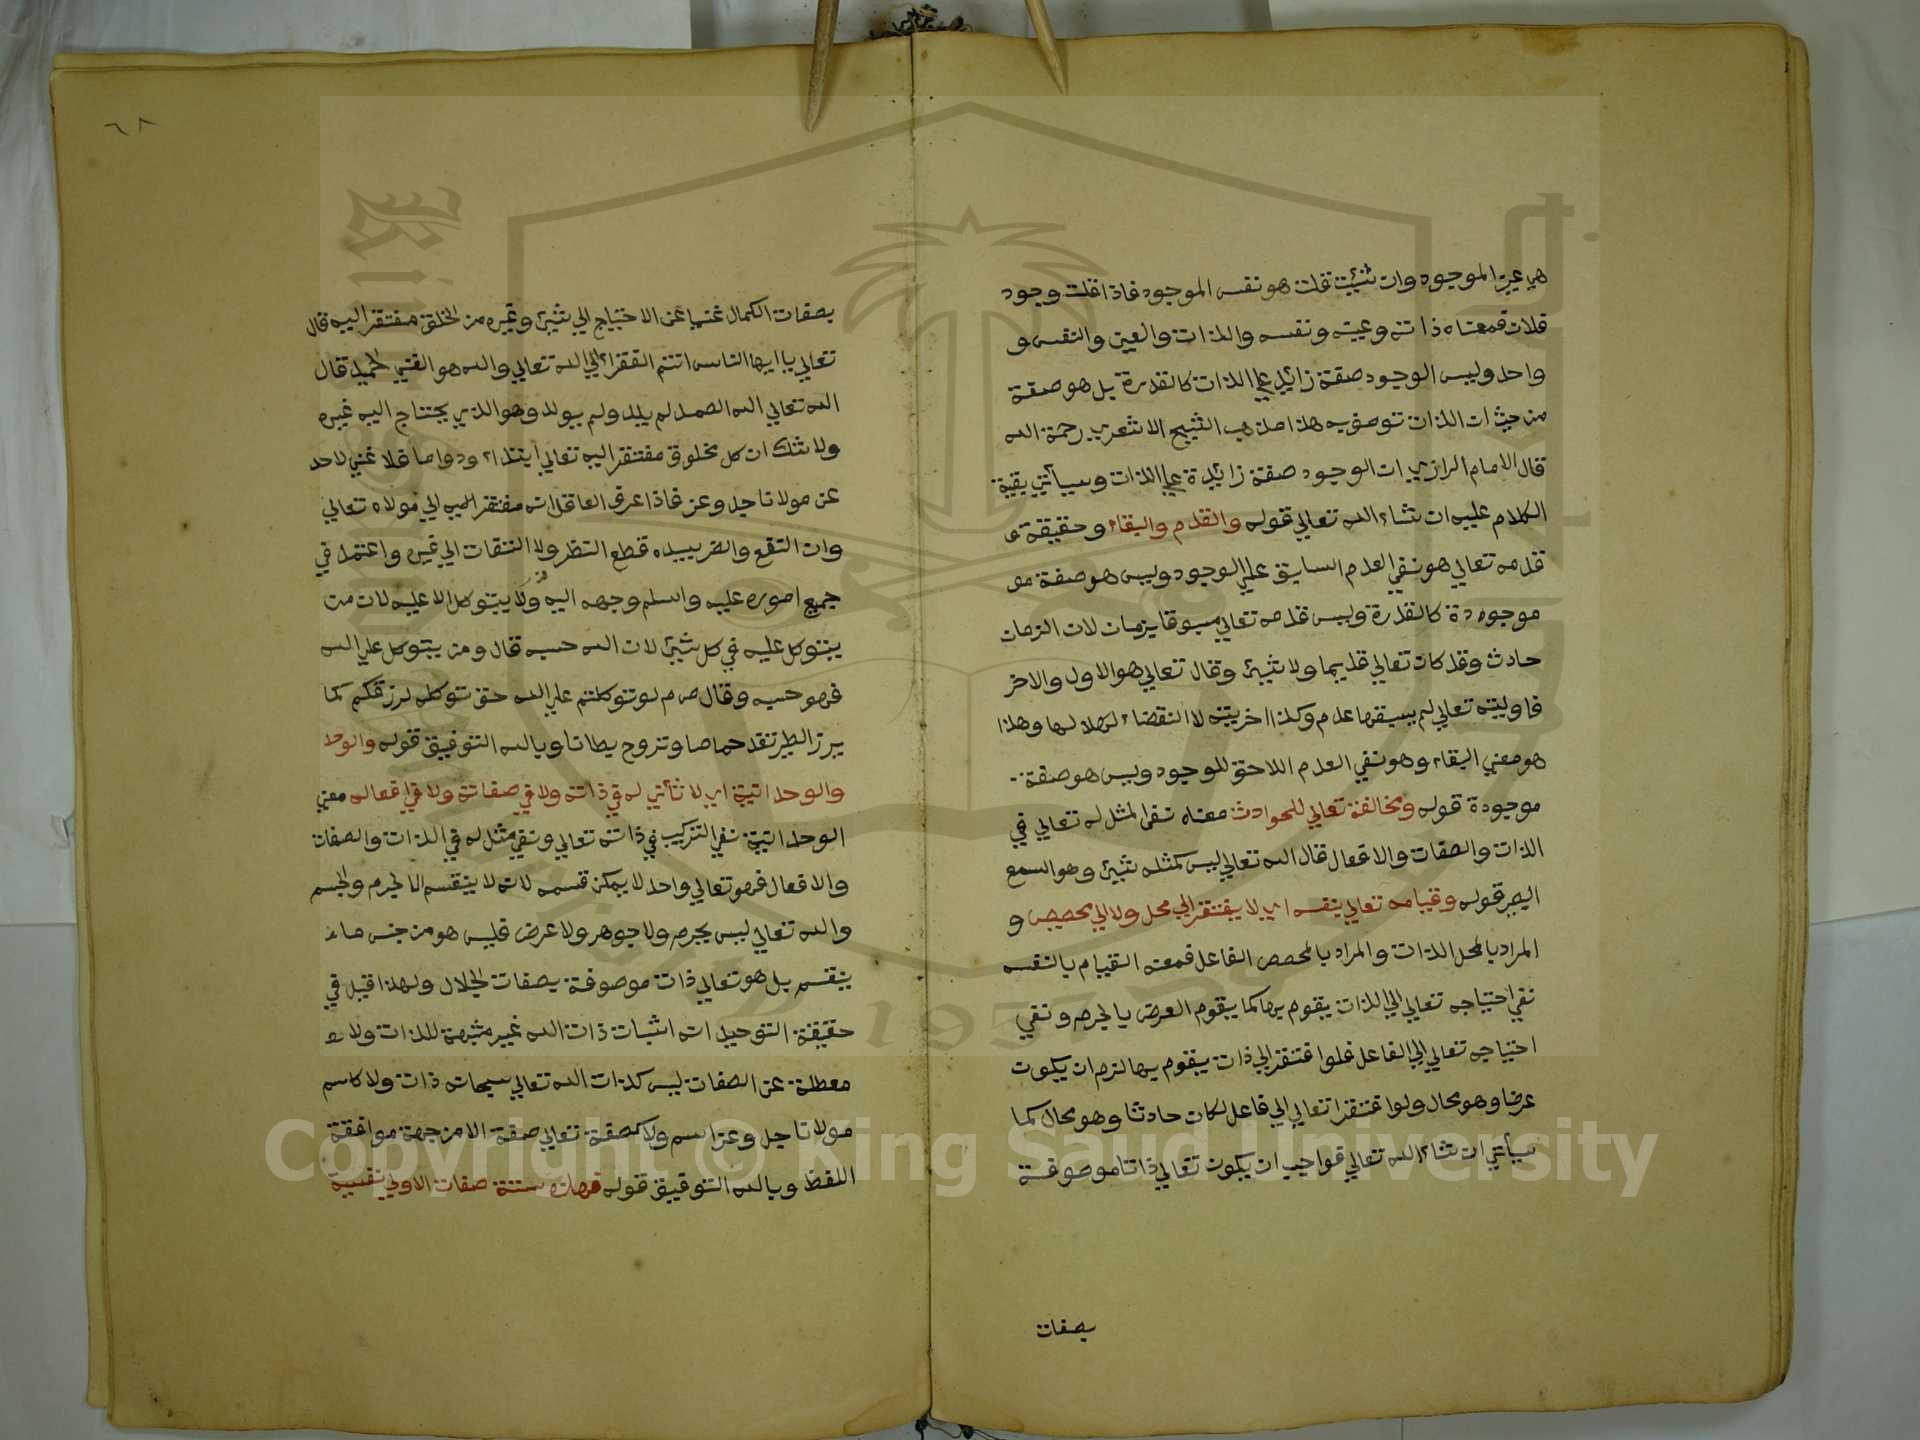 هي عين الموجود وان شئت قلت هو نفس الموجود فاذا قلت وجود
فلان فمعناه ذاته وعينه ونفسه والذات والعين والنفس و
واحد وليس الوجود صفة زائدة علي الذات كالقدرة بل هو صفة
من حيث ان الذات توصف به هذا مذهب الشيخ الاشعري رحمة الله
قال الامام الرازي ان الوجود صفة زائدة علي الذات وسيأتي بقية
الكلام عليه ان شاء الله تعالي قوله والقدم والبقاء وحقيقة
قدمه تعالي هو نفي العدم السابق علي الوجود وليس هو صفة مو
موجودة كالقدرة وليس قدمه تعالي مسبوقا بزمان لان الزمان
حادث وقد كان تعالي قديما ولا شيئ وقال تعالي هو الاول والاخر
فاوليته تعالي لم يسبقها عدم وكذا اخريته لا انقضاء لها وهذا
هو معني البقاء وهو نفي العدم اللاحق للوجود وليس هو صفة
موجودة قوله ومخالفة تعالي للحوادث معناه نفي المثل له تعالي في
الذات والصفات والافعال قال الله تعالي ليس كمثله شيئ وهو السمع
البصر قوله وقيامه تعالي بنفسه اي لا يفتقر الي محل ولا الي مخصص و
المراد بالمحل الذات والمراد بالمخصص الفاعل فمعنه القيام بالنفسه
نفي احتياجه تعالي الي الذات يقوم بها كما يقوم العرض بالجرم ونفي
احتياجه تعالي الي الفاعل فلوا فتقر الي ذات يقوم بها لزم ان يكون
عرضا وهو محال ولوا فتقرا تعالي الي فاعل لكان حادثا وهو محال كما
سيأتي ان شاء الله تعالي فواجب ان يكون تعالي ذاتا موصوفة
بصفات
٦٨
بصفات الكمال غنيا عن الاحتياج الي شيئ وغيره من الخلق مفتقر اليه قال
تعالي يا ايها الناس انتم الفقراء الي الله تعالي والله هو الغني الحميد قال
الله تعالي الله الصمد لم يلد ولم يولد وهو الذي يحتاج اليه غيره
ولا شك ان كل مخلوق مفتقر اليه تعالي ابتداء ودواما فلا غني لاحد
عن مولانا جل وعز فاذا عرف العاقل انه مفتقر اليه الي مولاه تعالي
وان النفع والضر بيده قطع النظر ولا التفات الي غيره واعتمد في
جميع اموره عليه واسلم وجهه اليه ولا يتوكل الا عليه لان من
يتوكل عليه في كل شيئ لان الله حسبه قال ومن يتوكل علي الله
فهو حسبه وقال ص م لو توكلتم علي الله حق توكله لرزقكم كما
يرز الطير تغد خماصا وتروح بطانا وبالله التوفيق قوله والوحد
والوحدانية اي لا ثأني له في ذاته ولا في صفاته ولا في افعاله معني
الوحدانية نفي التركيب في ذاته تعالي ونفي مثل له في الذات والصفات
والافعال فهو تعالي واحد لا يمكن قسمه لانه لا ينقسم الا الجرم والجسم
والله تعالي ليس بجرم ولا جوهر ولا عرض فليس هو من جنس ما
ينقسم بل هو تعالي ذات موصوفة بصفات الجلال ولهذا قيل في
حقيقة التوحيد انه اثبات ذات الله غير مشبهة للذات ولا
معطلة عن الصفات ليس كذات الله تعالي سبحانه ذات ولا كاسم
مولانا جل وعز اسم ولا كصفة تعالي صفة الا من جهة موافقة
اللفظ وبالله التوفيق قوله فهذه ستة صفات الاولي نفسية
Copyright © King Saud University
1957